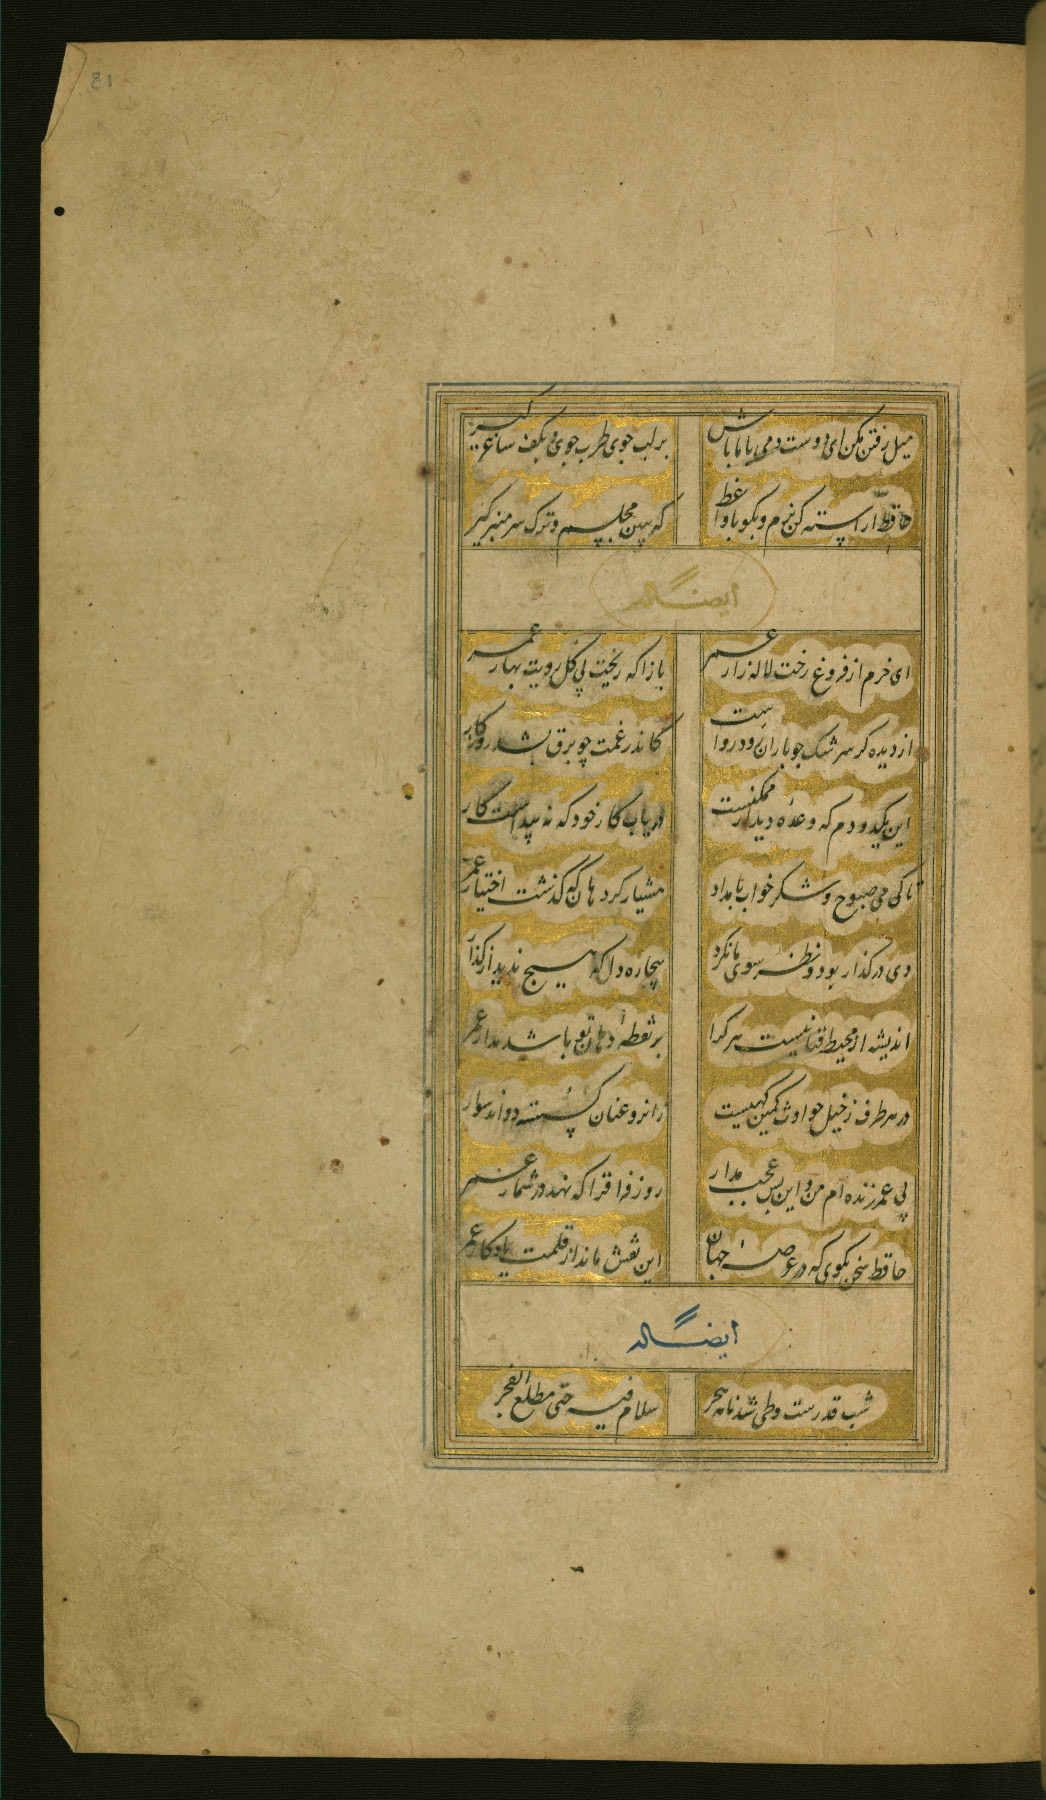 81
میل رفتن مکن ای دوست دمی با ما باش
بر لب جوی طرب جوی و بکف ساغر گیر
حافظ آراسته کن بزم و بگو با واعظ
که ببین مجلسم و ترک سر منبر گیر
ایضا له
ای خرم از فروغ رخت لاله زار عمر
بازا که ریخت بی گل رویت بهار عمر
از دیده گر سرشک چو باران رود رواست
کاندر غمت چو برق بشد روزگار عمر
این یکدو دم که وعده دیدار ممکنست
دریاب کار خود که نه پیداست کار عمر
تا کی می صبوح و شکر خواب بامداد
هشیار گرد هان که گذشت اختیار عمر
دی در گذار بود و نظر سوی ما نکرد
بیچاره دل که هیچ ندید از گذار
اندیشه از محیط فنا نیست هر کرا
بر نقطه دهان تو باشد مدار عمر
در هر طرف ز خیل حوادث کمین گهیست
زانرو عنان گسسته دواند سوار
بی عمر زنده ام من و این بس عجب مدار
روز فراق را که نهد در شمار عمر
حافظ سخن بگوی که در عرصه جهان
این نقش ماند از قلمت یادگار عمر
ایضا له
شب قدرست و طی شد نامه هجر
سلام فیه حتی مطلع الفجر